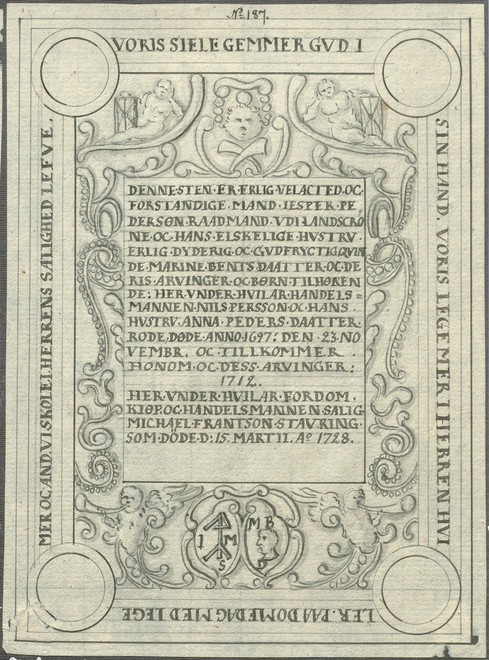 No 187.
VORIS SIELE GEMMER GVD I
SIN HAND. VORIS LEGEMER I HERREN HVI
LER. PAA DOMEDAG MED LEGE
MER OC·AND. VI SKOLE I HERRENS SALIGHED LEFVE.
DENNE·STEN·ER·ERLIG·VELACTED·OC·
FORSTANDIGE·MAND·IESPER·PE
DERSØN·RAADMAND·VDI·LANDSCRO
NE·OC·HANS·ELSKELIGE·HVSTRV·
ERLIG·DYDERIG·OC·GVDFRYCTIG QVIN
DE·MARINE·BENTS·DAATTER·OC·DE
RIS·ARVINGER·OC·BØRN·TILHØREN
DE: HER·VNDER·HVILAR·HANDELS=
MANNEN·NILS·PERSSON·OC·HANS·
HVSTRV·ANNA·PEDERS·DAATTER·
RODE, DØDE·ANNO·1697: DEN·23·NO
VEMBR. OC·TILLKOMMER.
HONOM·OC·DESS·ARVINGER:
1712.
HER·VNDER·HVILAR·FORDOM.
KIØP·OC·HANDELSMANNEN·SALIG
MICHAEL·FRANTSON·STAVRING·
SOM·DÖDE·D: 15. MARTII. Ao 1728.
I M
S
M B
D